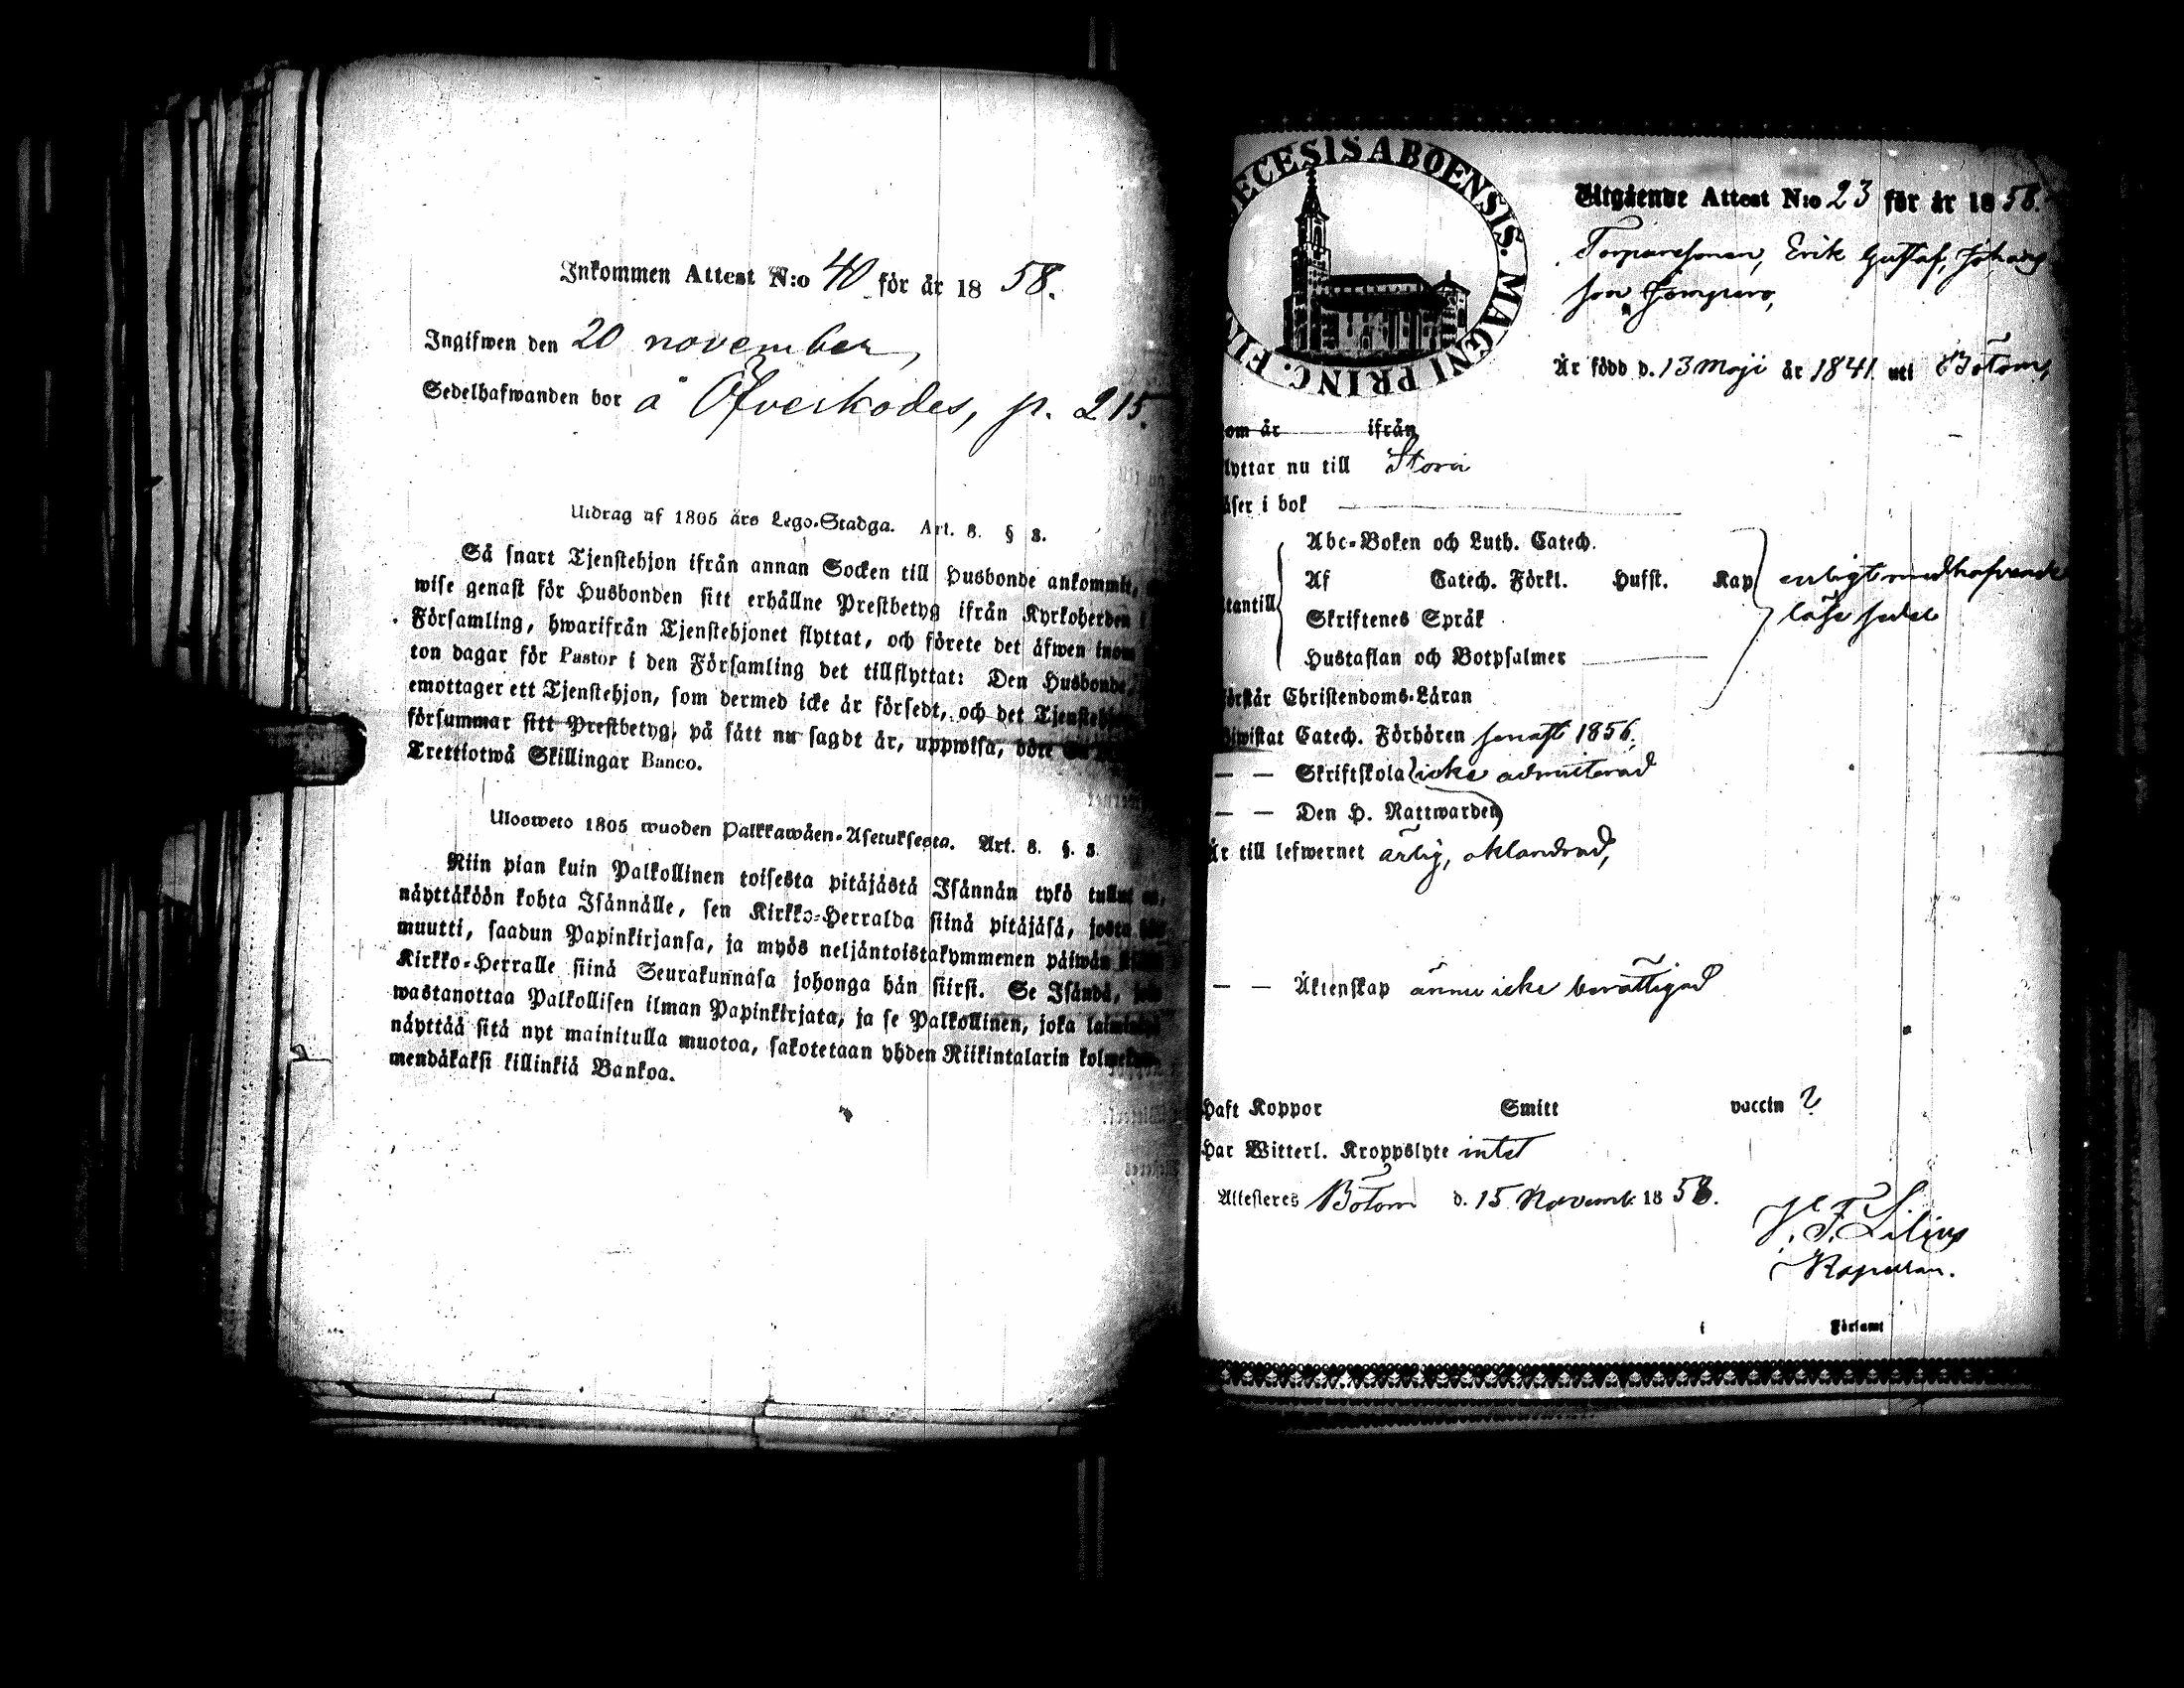 Inkommen Attest N:o 40 för år 18 58.
Ingifwen den 20 november,
Sedelhafwanden bor å Öfverkodes, p. 215.
Utdrag af 1805 års Lego-Stadga. Art. 8. § 3.
Så snart Tjenstehjon ifrån annan Socken till Husbonde ankommit,
wise genast för Husbonden sitt erhållne Prestbetyg ifrån Kyrkoherden i
Församling, hwarifrån Tjenstehjonet flyttat, och förete det äfwen inom
ton dagar för Pastor i den Församling det tillflyttat: Den Husbonde,
emottager ett Tjenstehjon, som dermed icke är försedt, och det Tjenstehjon
försummar sitt Prestbetyg, på sätt nu sagdt är, uppwisa, böte
Trettiotwå Skillingar Banco.
Ulosweto 1805 wuoden Palkkawäen-Asetuksesta. Art. 8. §. 3.
Niin pian kuin Palkollinen toisesta pitäjästä Isännän tykö tullut on,
näyttäköön kohta Isännälle, sen Kirkko-Herralda siinä pitäjäsä, josta hän
muutti, saadun Papinkirjansa, ja myös neljäntoistakymmenen päiwän
Kirkko-Herralle siinä Seurakunnasa johonga hän siirsi. Se Isändä, joka
wastanottaa Palkollisen ilman Papinkirjata, ja se Palkollinen, joka
näyttää sitä nyt mainitulla muotoa, sakotetaan yhden Riikintalarin
mendäkaksi killinkiä Bankoa.
ECESIS ABOENSIS. MAGNI PRINC. FIN
Utgående Attest N:o 23 för år 18 58.
Torparesonen, Erik Gustaf, Johans
son
Är född d. 13 Maji år 1841 uti Bötom,
om år ifrån
lyttar nu till Storå
äser i bok
Abc-Boken och Luth. Catech.
Af Catech. Förkl. Husst. Kap enligt medhafvande
tantill Skriftenes Språk läse sedel
Hustaflan och Botpsalmer
örstår Christendoms-Läran
iwistat Catech. Förhören senast 1856.
— — Skriftskola icke admitterad
— — Den H. Nattwarden
Är till lefwernet ärlig, oklandrad,
— — Äktenskap ännu icke berättigad
Haft Koppor Smitt vaccin ?
Har Witterl. Kroppslyte intet
Attesteres Bötom d. 15 Novemb. 18 58.
J. F. Lilius
Kapellan.
i Församl